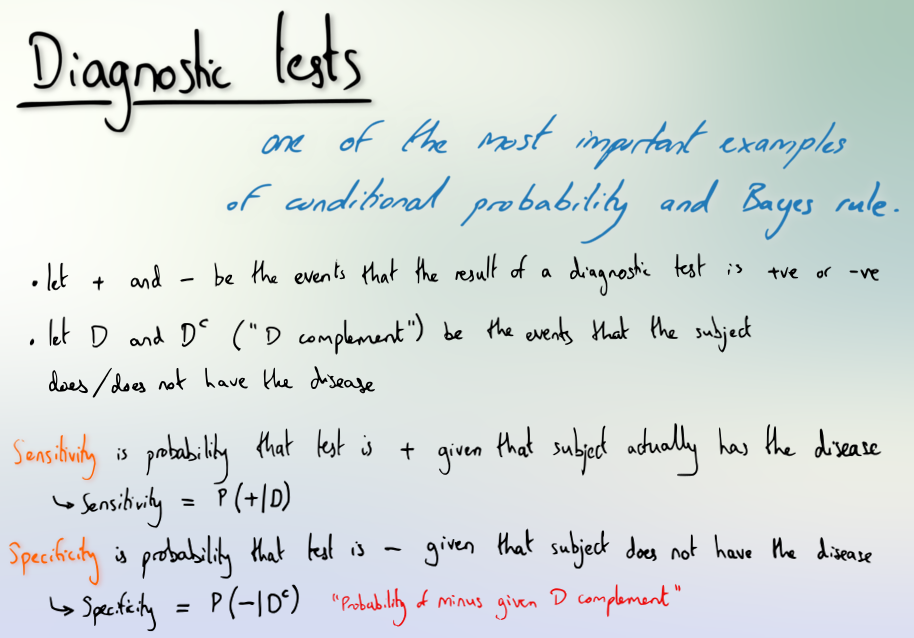 Diagnostic tests
one of the most important examples
of conditional probability and Bayes rule.
• let + and - be the events that the result of a diagnostic test is +ve or -ve
• let D and Dᶜ ("D complement") be the events that the subject
does/does not have the disease
Sensitivity is probability that test is + given that subject actually has the disease
↳ Sensitivity = P(+|D)
Specificity is probability that test is - given that subject does not have the disease
↳ Specificity = P(-|Dᶜ) "Probability of minus given D complement"